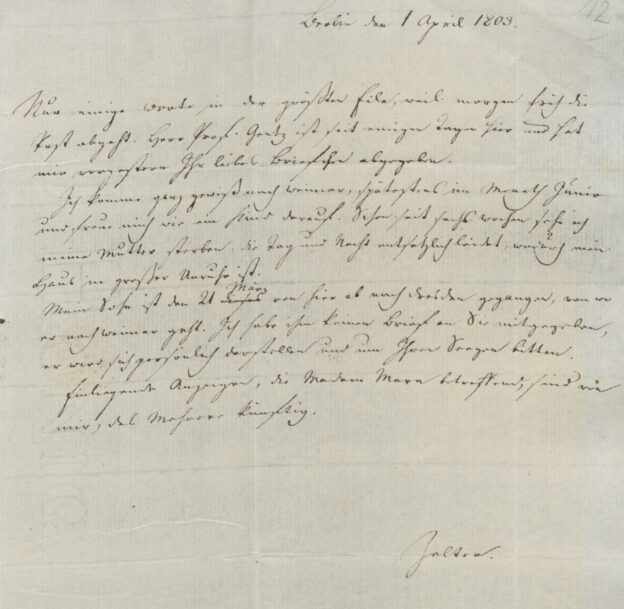 12
Berlin den 1 April 1803.
Nur einige Worte in der größten Eile, weil morgen früh die
Post abgeht. Herr Prof. Gentz ist seit einigen Tagen hier und hat
mir vorgestern Ihr liebes Briefchen abgegeben.
Ich komme ganz gewiß nach Weimar, spätestens im Monath Junio
und freue mich wie ein Kind darauf. Schon seit sechs Wochen sehe ich
meine Mutter sterben, die Tag und Nacht entsetzlich leidet, wodurch mein
Haus in großer Unruhe ist.
Mein Sohn ist den 21 März von hier ab nach Dresden gegangen, von wo
er nach Weimar geht. Ich habe ihm keinen Brief an Sie mitgegeben,
er wird sich persönlich darstellen und um Ihren Seegen bitten.
Einliegende Anzeigen, die Madam Mara betreffend, sind von
mir, das Mehrere künftig.
Zelter.